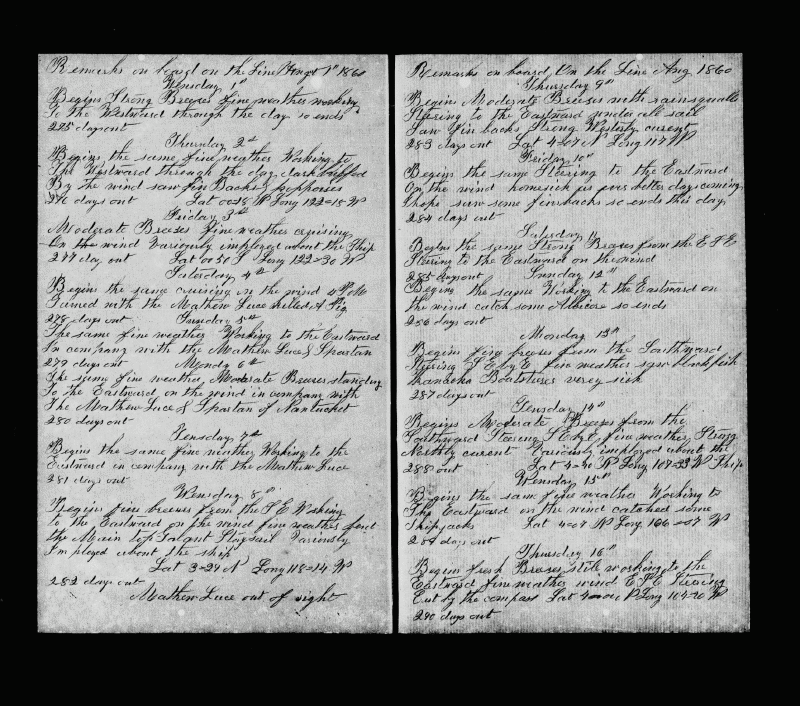 Remarks on board on the Line Augst 1st 1860
Wensday 1st
Begins Strong Breezes fine weather working
To the Westward through the day so ends
275 days out
Thursday 2nd
Begins the same fine weather Working to
The Westward through the day
By the wind saw fin Backs &
276 days out Lat 00=18 N Long 122=15 W
Friday 3rd
Moderate Breeses fine weather cruising
On the wind Variously imployed about the Ship
277 day out Lat 00 51 S Long 122=30 W
Saterday 4th
Begins the same cruising on the wind 4 PM
Gamed with the Mathew Luce killed A Pig
278 days out Sunday 5th
The same fine weather Working to the Eastward
In company with the Mathew Luce & Spartan
279 days out Mondy 6th
The same fine weather Moderate Breeses standing
To the Eastward on the wind in company with
The Mathew Luce & Spartan of Nantucket
280 days out
Tensday 7th
Begins the same fine weather Working to the
Eastward in company with the Mathew Luce
281 days out
Wensday 8th
Begins fine breeses from the S E Working
to the Eastward on the wind fine weather bent
the Main top Galgnt Staysail Variously
Imployed about the ship
Lat 3=24 N Long 118=14 W
282 days out
Mathew Luce out of sight
Remarks on board On the Line Aug 1860
Thursday 9th
Begins Moderate Breeses with rainsqualls
Stering to the Eastward under all sail
Saw fin backs Strong Westerly current
283 days out Lat 4=07 N Long 117 W
Friday 10th
Begins the same Stering to the Eastward
On the wind homesick as ever better days coming
I hope saw some finbacks so ends this day
284 days out
Saturday 11
Begins the same Strong Breases from the E S E
Stering to the Eastward on the wind
285 days out Sunday 12th
Begins the same Working to the Eastward on
the wind catch some Albicore so ends
286 days out
Monday 13th
Begins fine breeses from the Southward
Stering S E by E fine weather saw blackfish
Kanacka Boatsteerer very sick
287 days out
Tensday 14th
Begins Moderate Breeses from the
Southward Stearing S E by E fine weather Strong
Northly current Variously imployed about the
288 out Lat 4=40 N Long 107=33 W Ship
Wensday 15th
Begins the same fine weather Working to
The Eastward on the wind catched some
Skipjacks Lat 4=07 N Long 106=07 W
289 days out
Thursday 16th
Begins fresh Breeses still working to the
Eastward fine weather wind E S E Stearing
East by the compass Lat 4=00 N Long 104=20 W
290 days out